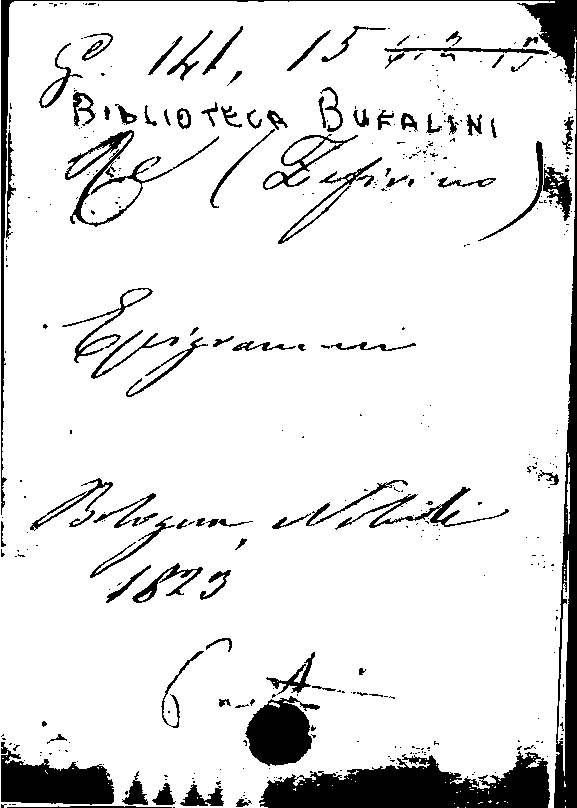 G. 141, 15
BIBLIOTECA BUFALINI
Re (Zefirino)
Epigrammi
Bologna, Nobili
1823